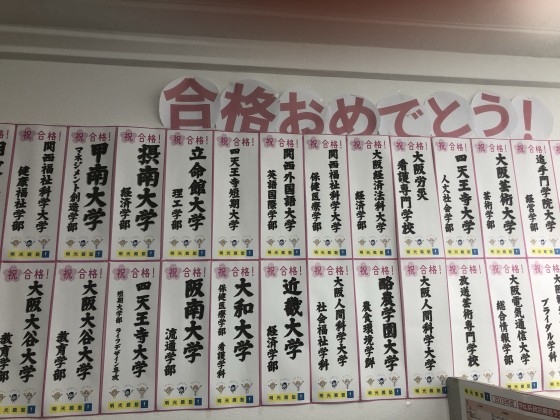 合格おめでとう!
祝合格!
関西福祉科学大学
健康福祉学部
祝合格!
甲南大学
マネジメント創造学部
祝合格!
摂南大学
経済学部
祝合格!
立命館大学
理工学部
祝合格!
四天王寺短期大学
祝合格!
関西外国語大学
英語国際学部
祝合格!
関西福祉科学大学
保健医療学部
祝合格!
大阪経済法科大学
経済学部
祝合格!
大阪労災
看護専門学校
祝合格!
四天王寺大学
人文社会学部
祝合格!
大阪芸術大学
芸術学部
祝合格!
追手門学院大
経営学部
祝合格!
大阪大谷大学
教育学部
祝合格!
大阪大谷大学
教育学部
祝合格!
四天王寺大学
短期大学部 ライフデザイン専攻
祝合格!
阪南大学
流通学部
祝合格!
大和大学
保健医療学部 看護学科
祝合格!
近畿大学
経済学部
祝合格!
大阪人間科学大学
社会福祉学科
祝合格!
酪農学園大学
農食環境学群
祝合格!
大阪人間科学大学
祝合格!
放送芸術専門学校
祝合格!
大阪電気通信大学
総合情報学部
祝合格!
ブライダル学科
明光義塾